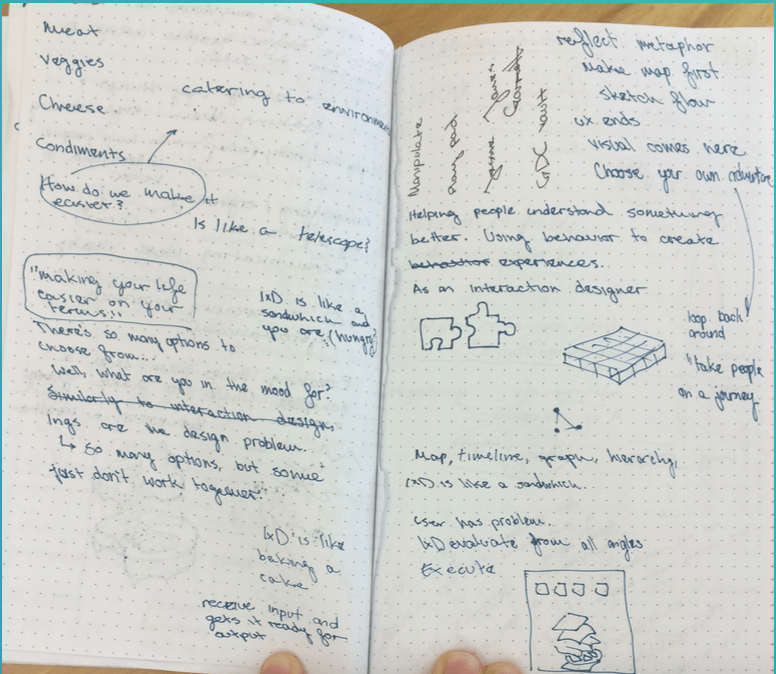 Meat
Veggies
Cheese
Condiments
catering to environment
How do we make it
easier?
Is like a telescope?
"making your life
easier on your
terms!"
IxD is like a
sandwhich and
you are (hungry)
There's so many options to
choose from...
Well, what are you in the mood for?
Similarly to interaction design,
Ings are the design problem.
↳ so many options, but some
just don't work together.
IxD is like
baking a
cake
receive input and
gets it ready for
output
Manipulate
vault
reflect metaphor
Make map first
sketch flow
ux ends
visual comes here
Choose your own adventure
Helping people understand something
better. Using behavior to create
experiences.
As an interaction designer
loop back
around
"take people
on a journey
Map, timeline, graph, hierarchy,
IxD is like a sandwhich.
User has problem.
IxD evaluate from all angles
Execute